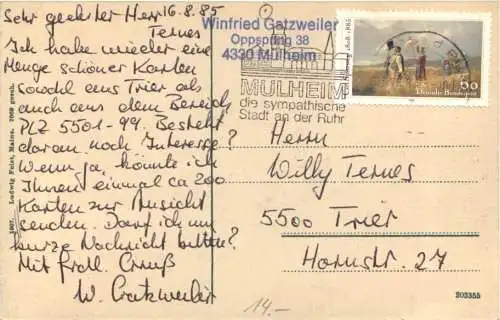 Sehr geehrter Herr 16.8.85
Ternes
Ich habe wieder eine
Menge schöner Karten
sowohl aus Trier als
auch aus dem Bereich
PLZ 5501-99. Besteht
daran noch Interesse?
Wenn ja, könnte ich
Ihnen einmal ca 200
Karten zur Ansicht
senden. Darf ich um
kurze Nachricht bitten?
Mit frdl. Gruß
W. Gatzweiler
Winfried Gatzweiler
Oppspring 38
4330 Mülheim
MÜLHEIM
die sympathische
Stadt an der Ruhr
50
Deutsche Bundespost
Herrn
Willy Ternes
5500 Trier
Hornstr. 27
14.-
203355
1907. Ludwig Feist, Mainz.